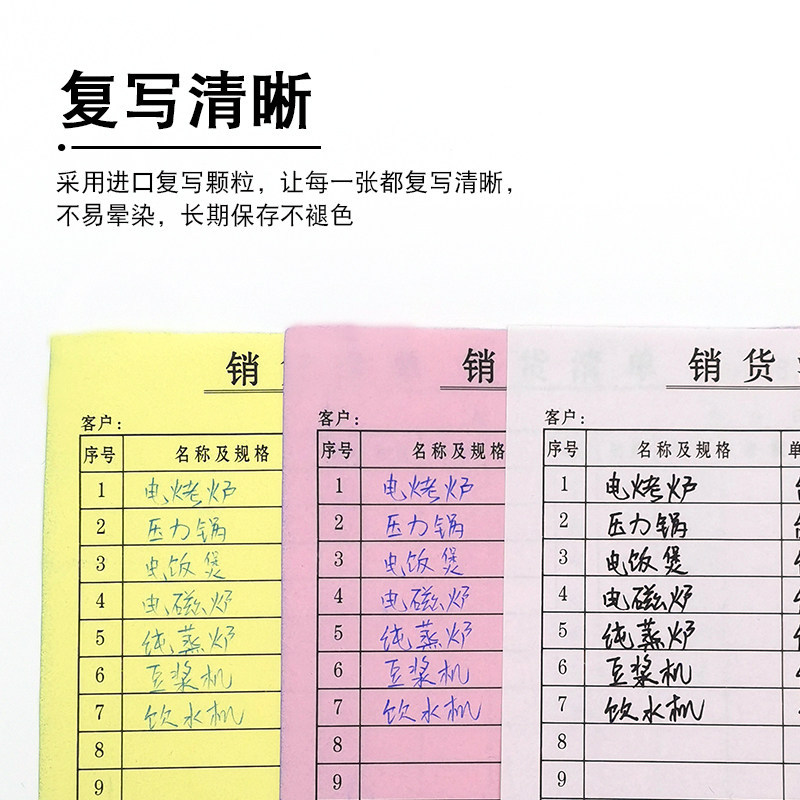 复写清晰
采用进口复写颗粒，让每一张都复写清晰，
不易晕染，长期保存不褪色
销
客户：
序号 名称及规格
1 电烤炉
2 压力锅
3 电饭煲
4 电磁炉
5 炖蒸炉
6 豆浆机
7 饮水机
8
9
销 货清单
客户：
序号 名称及规格
1 电烤炉
2 压力锅
3 电饭煲
4 电磁炉
5 炖蒸炉
6 豆浆机
7 饮水机
8
9
销 货
客户：
序号 名称及规格 单
1 电烤炉
2 压力锅
3 电饭煲
4 电磁炉
5 炖蒸炉
6 豆浆机
7 饮水机
8
9